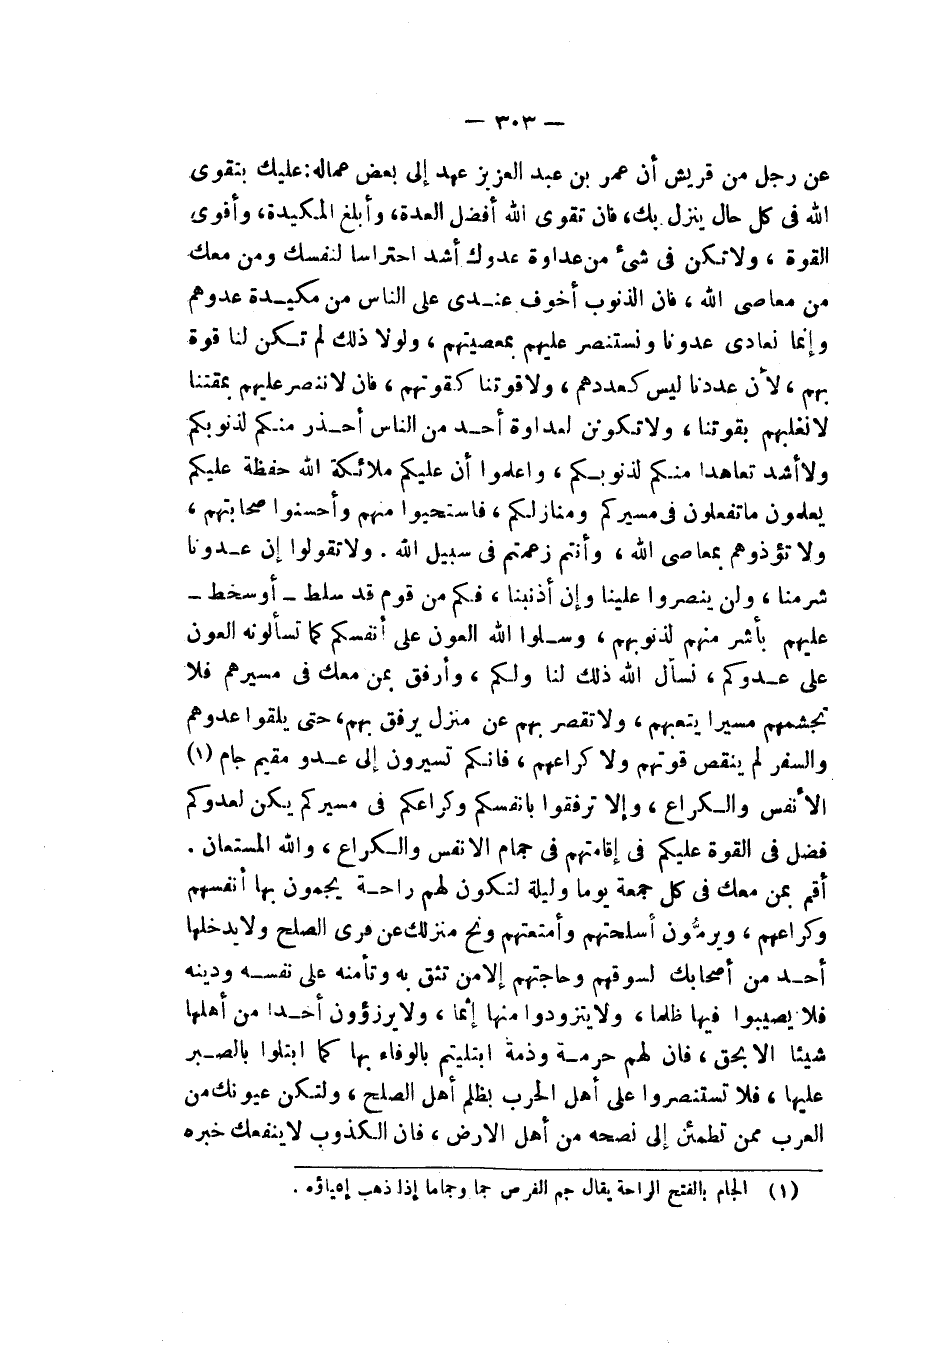 — ٣٠٣ —
عن رجل من قريش أن عمر بن عبد العزيز عهد إلى بعض عماله: عليك بتقوى
الله فى كل حال ينزل بك، فان تقوى الله أفضل العدة، وأبلغ المكيدة، وأقوى
القوة ، ولاتكن فى شىء من عداوة عدوك أشد احتراسا لنفسك ومن معك
من معاصى الله ، فان الذنوب أخوف عندى على الناس من مكيدة عدوهم
وإنما نعادى عدونا ونستنصر عليهم بمعصيتهم ، ولولا ذلك لم تكن لنا قوة
بهم ، لأن عددنا ليس كعددهم ، ولاقوتنا كقوتهم ، فان لاننصر عليهم بمقتنا
لانغلبهم بقوتنا ، ولاتكونن لعداوة أحد من الناس أحذر منكم لذنوبكم
ولاأشد تعاهدا منكم لذنوبكم ، واعلموا أن عليكم ملائكة الله حفظة عليكم
يعلمون ماتفعلون فى مسيركم ومنازلكم ، فاستحيوا منهم وأحسنوا صحابتهم ،
ولا تؤذوهم بمعاصى الله ، وأنتم زعمتم فى سبيل الله . ولاتقولوا إن عدونا
شر منا ، ولن ينصروا علينا وإن أذنبنا ، فكم من قوم قد سلط ـ أوسخط ـ
عليهم بأشر منهم لذنوبهم ، وسلوا الله العون على أنفسكم كما تسألونه العون
على عدوكم ، نسأل الله ذلك لنا ولكم ، وأرفق بمن معك فى مسيرهم فلا
تجشمهم مسيرا يتعبهم ، ولاتقصر بهم عن منزل يرفق بهم، حتى يلقوا عدوهم
والسفر لم ينقص قوتهم ولا كراعهم ، فانكم تسيرون إلى عدو مقيم جام (١)
الأنفس والكراع ، وإلا ترفقوا بانفسكم وكراعكم فى مسيركم يكن لعدوكم
فضل فى القوة عليكم فى إقامتهم فى جمام الانفس والكراع ، والله المستعان .
أقم بمن معك فى كل جمعة يوما وليلة لتكون لهم راحة يجمون بها أنفسهم
وكراعهم ، ويرمُّون أسلحتهم وأمتعتهم ونح منزلك عن قرى الصلح ولايدخلها
أحد من أصحابك لسوقهم وحاجتهم إلا من تثق به وتأمنه على نفسه ودينه
فلا يصيبوا فيها ظلما ، ولايتزودوا منها إثما ، ولايرزؤون أحدا من أهلها
شيئا الا بحق ، فان لهم حرمة وذمة ابتليتم بالوفاء بها كما ابتلوا بالصبر
عليها ، فلا تستنصروا على أهل الحرب بظلم أهل الصلح ، ولتكن عيونك من
العرب ممن تطمئن إلى نصحه من أهل الارض ، فان الكذوب لاينفعك خبره
(١) الجمام بالفتح الراحة يقال جم الفرص جما وجماما إذا ذهب إعياؤه .